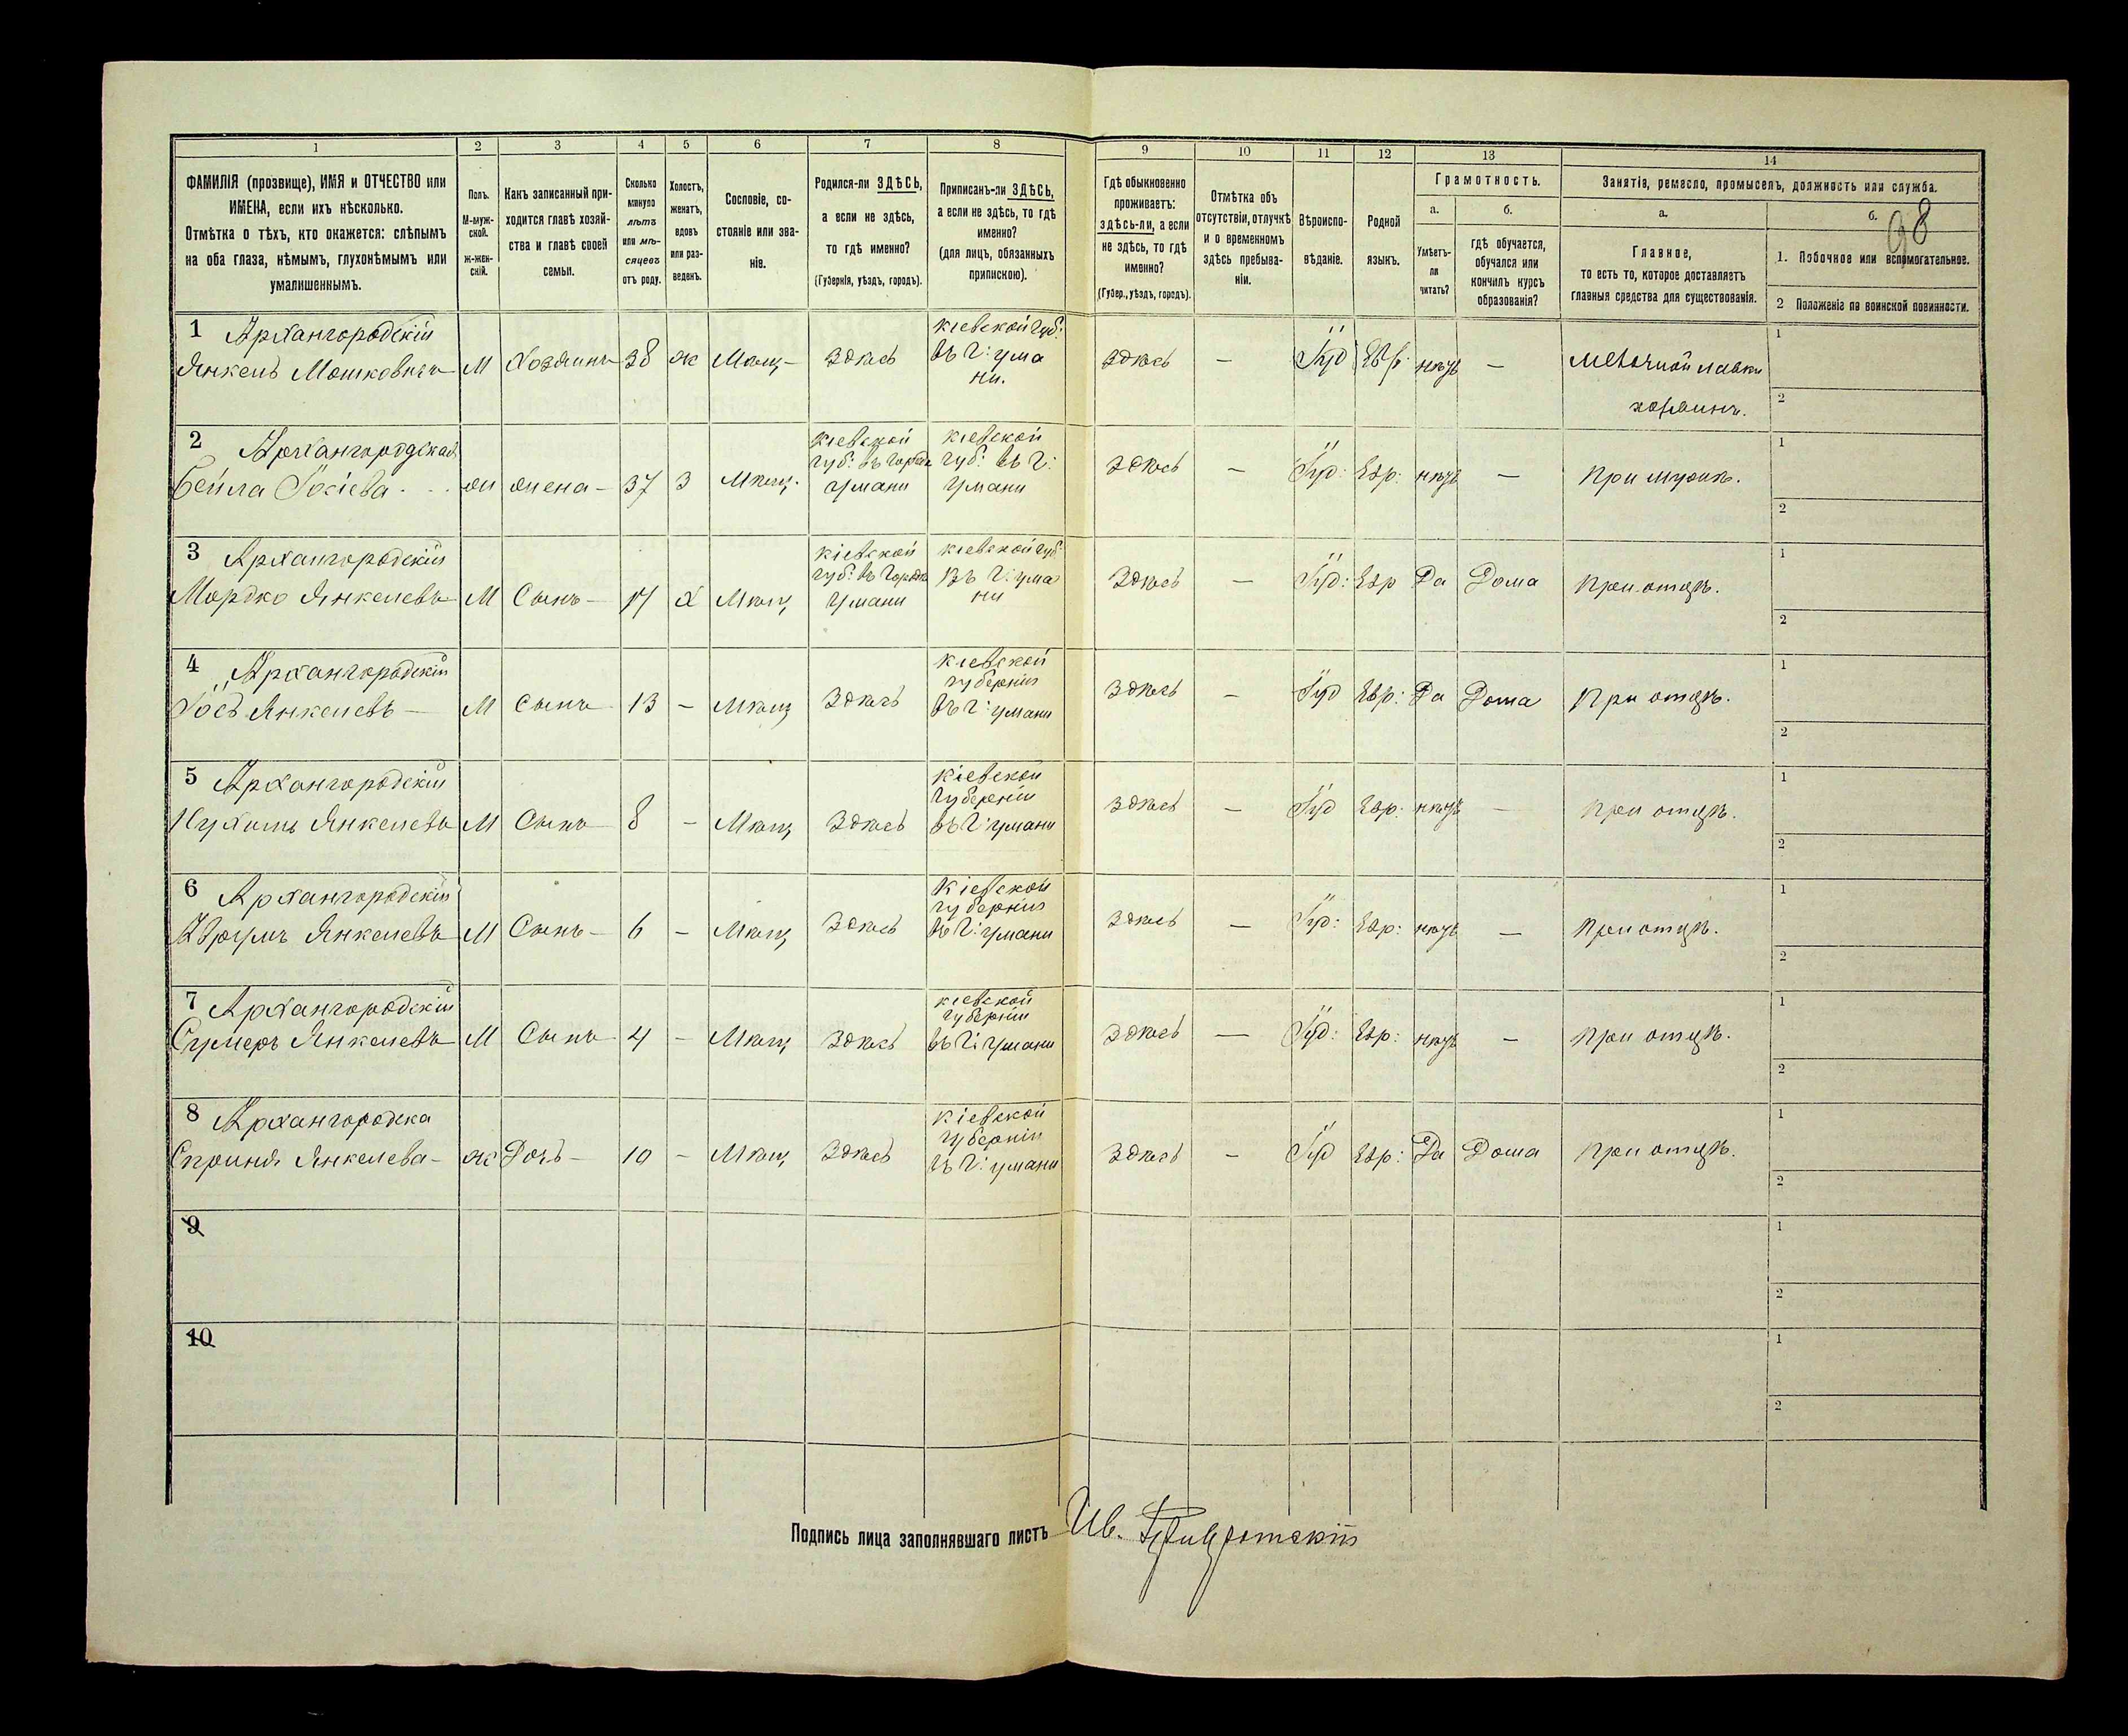 98
1 2 3 4 5 6 7 8 9 10 11 12 13 14
ФАМИЛІЯ (прозвище), ИМЯ и ОТЧЕСТВО или
ИМЕНА, если ихъ нѣсколько.
Отмѣтка о тѣхъ, кто окажется: слѣпымъ
на оба глаза, нѣмымъ, глухонѣмымъ или
умалишеннымъ.
Полъ.
М-муж-
ской.
ж-жен-
скій.
Какъ записанный при-
ходится главѣ хозяй-
ства и главѣ своей
семьи.
Сколько
минуло
лѣтъ
или мѣ-
сяцевъ
отъ роду.
Холостъ,
женатъ,
вдовъ
или раз-
веденъ.
Сословіе, со-
стояніе или зва-
ніе.
Родился-ли ЗДѢСЬ,
а если не здѣсь,
то гдѣ именно?
(Губернія, уѣздъ, городъ).
Приписанъ-ли ЗДѢСЬ,
а если не здѣсь, то гдѣ
именно?
(для лицъ, обязанныхъ
припискою).
Гдѣ обыкновенно
проживаетъ:
здѣсь-ли, а если
не здѣсь, то гдѣ
именно?
(Губер., уѣздъ, городъ).
Отмѣтка объ
отсутствіи, отлучкѣ
и о временномъ
здѣсь пребыва-
ніи.
Вѣроиспо-
вѣданіе.
Родной
языкъ.
Грамотность.
а.
Умѣетъ-
ли
читать?
б.
гдѣ обучается,
обучался или
кончилъ курсъ
образованія?
Занятіе, ремесло, промыселъ, должность или служба.
а.
Главное,
то есть то, которое доставляетъ
главныя средства для существованія.
б.
1. Побочное или вспомогательное.
2 Положеніе по воинской повинности.
1 Архангородскій
Янкель Мошковичъ М Хозяинъ 38 ж Мѣщ здѣсь
кіевской губ:
въ г: ума
ни.
здѣсь — Іуд Евр. нѣтъ —
мелочной лавки
хозяинъ.
1
2
2 Архангородская
Бейла Іосіева жи жена 37 З Мѣщ.
кіевской
губ: въ городѣ
Умани
кіевской
губ: въ г:
Умани
здѣсь — Іуд: Евр: нѣтъ — при мужѣ.
1
2
3 Архангородскій
Мордко Янкелевъ М Сынъ 17 Х Мѣщ
кіевской
губ: въ городѣ
Умани
кіевской губ
въ г: ума
ни
здѣсь — Іуд: Евр Да Дома при отцѣ.
1
2
4 Архангородскій
Іось Янкелевъ М Сынъ 13 — Мѣщ здѣсь
кіевской
губерніи
въ г: умани
здѣсь — Іуд Евр: Да Дома при отцѣ.
1
2
5 Архангородскій
Нухимъ Янкелевъ М Сынъ 8 — Мѣщ здѣсь
кіевской
губерніи
въ г: умани
здѣсь — Іуд Евр: нѣтъ — при отцѣ.
1
2
6 Архангородскій
Аврумъ Янкелевъ М Сынъ 6 — Мѣщ здѣсь
кіевской
губерніи
въ г: умани
здѣсь — Іуд: Евр: нѣтъ — при отцѣ.
1
2
7 Архангородскій
Сумеръ Янкелевъ М Сынъ 4 — Мѣщ здѣсь
кіевской
губерніи
въ г: умани
здѣсь — Іуд: Евр: нѣтъ — при отцѣ.
1
2
8 Архангородска
Сприня Янкелева ж Дочь 10 — Мѣщ здѣсь
кіевской
губерніи
въ г: умани
здѣсь — Іуд Евр: Да Дома при отцѣ.
1
2
9
1
2
10
1
2
Подпись лица заполнявшаго листъ Ив.